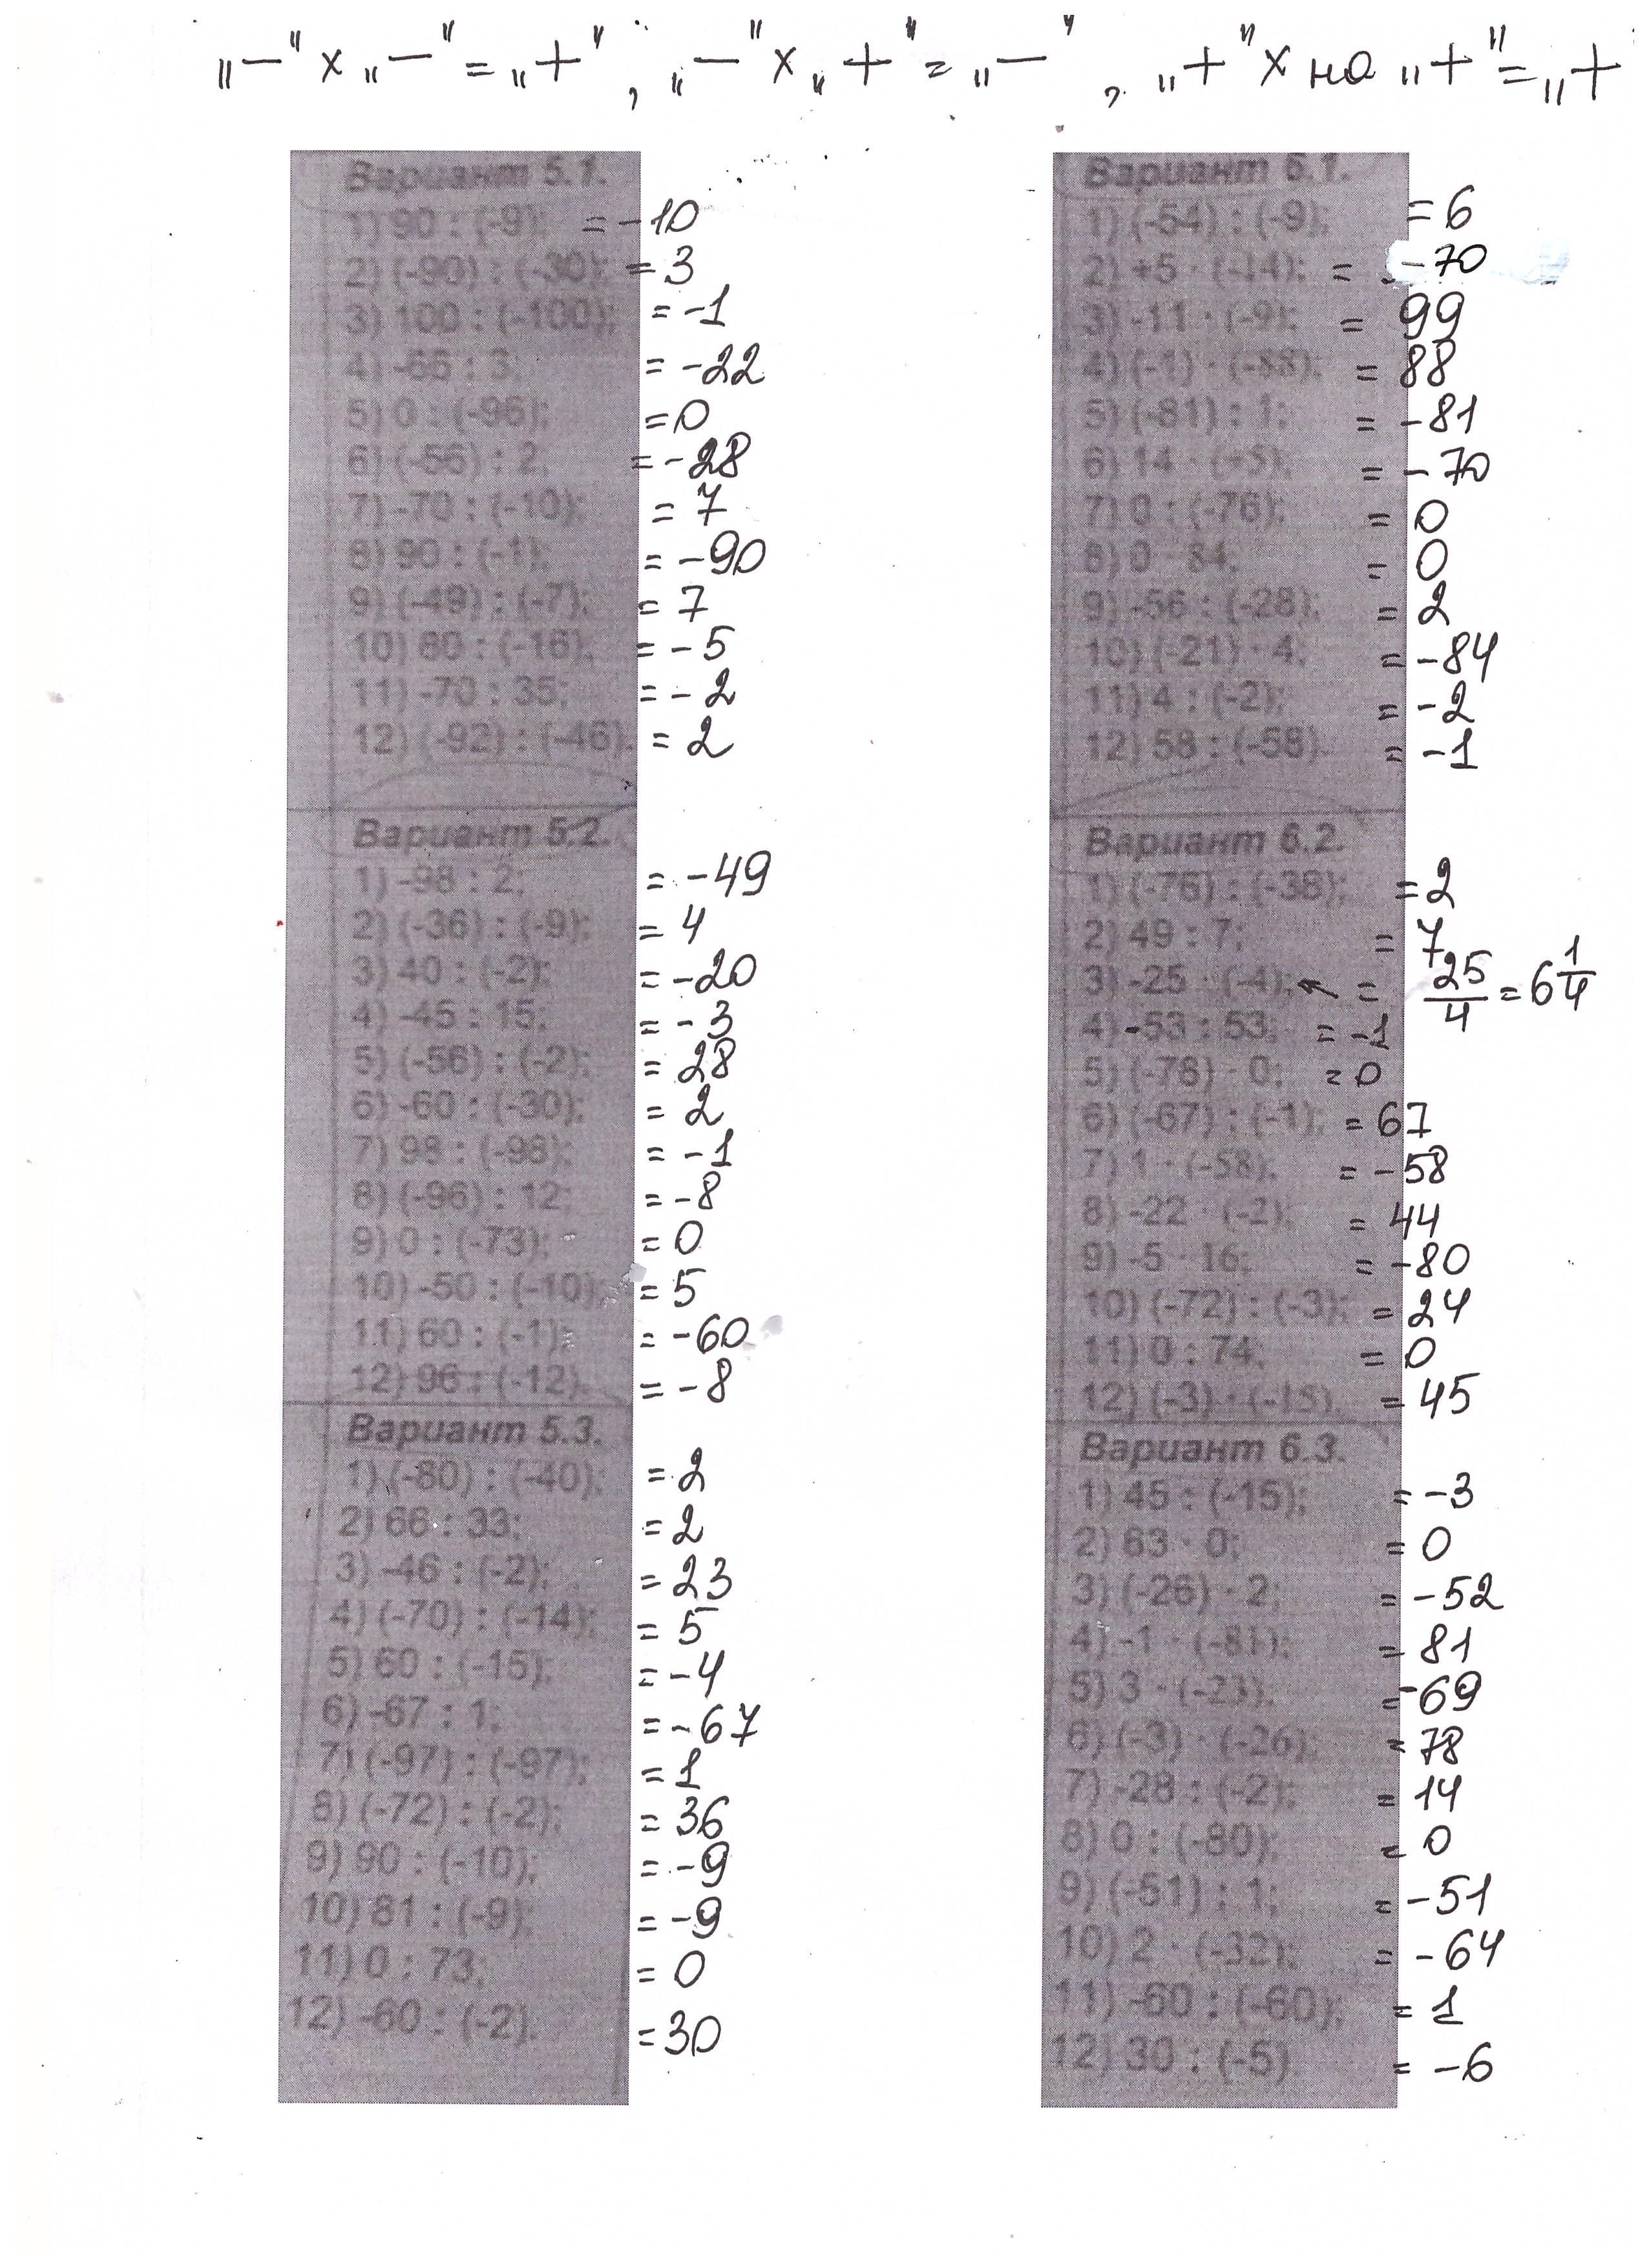 „—" x „—" = „+", „—" x „+" = „—", „+" x на „+" = „+
Вариант 5.1.
1) 90 : (-9); = -10
2) (-90) : (-30); = 3
3) 100 : (-100); = -1
4) -66 : 3; = -22
5) 0 : (-96); = 0
6) (-56) : 2; = -28
7) -70 : (-10); = 7
8) 90 : (-1); = -90
9) (-49) : (-7); = 7
10) 80 : (-16); = -5
11) -70 : 35; = -2
12) (-92) : (-46). = 2
Вариант 5.2.
1) -98 : 2; = -49
2) (-36) : (-9); = 4
3) 40 : (-2); = -20
4) -45 : 15; = -3
5) (-56) : (-2); = 28
6) -60 : (-30); = 2
7) 98 : (-98); = -1
8) (-96) : 12; = -8
9) 0 : (-73); = 0
10) -50 : (-10); = 5
11) 60 : (-1); = -60
12) 96 : (-12). = -8
Вариант 5.3.
1) (-80) : (-40); = 2
2) 66 : 33; = 2
3) -46 : (-2); = 23
4) (-70) : (-14); = 5
5) 60 : (-15); = -4
6) -67 : 1; = -67
7) (-97) : (-97); = 1
8) (-72) : (-2); = 36
9) 90 : (-10); = -9
10) 81 : (-9); = -9
11) 0 : 73; = 0
12) -60 : (-2). = 30
Вариант 6.1.
1) (-54) : (-9); = 6
2) +5 · (-14); = -70
3) -11 · (-9); = 99
4) (-1) · (-88); = 88
5) (-81) : 1; = -81
6) 14 · (+5); = -70
7) 0 : (-76); = 0
8) 0 · 84; = 0
9) -56 : (-28); = 2
10) (-21) · 4; = -84
11) 4 : (-2); = -2
12) 58 : (-58). = -1
Вариант 6.2.
1) (-76) : (-38); = 2
2) 49 : 7; = 7
3) -25 · (-4); = 25/4 = 6 1/4
4) -53 : 53; = -1
5) (-78) · 0; = 0
6) (-67) : (-1); = 67
7) 1 · (-58); = -58
8) -22 · (-2); = 44
9) -5 · 16; = -80
10) (-72) : (-3); = 24
11) 0 : 74; = 0
12) (-3) · (-15). = 45
Вариант 6.3.
1) 45 : (-15); = -3
2) 63 · 0; = 0
3) (-26) · 2; = -52
4) -1 · (-81); = 81
5) 3 · (-23). = -69
6) (-3) · (-26); = 78
7) -28 : (-2); = 14
8) 0 : (-80); = 0
9) (-51) : 1; = -51
10) 2 · (-32); = -64
11) -60 : (-60); = 1
12) 30 : (-5). = -6